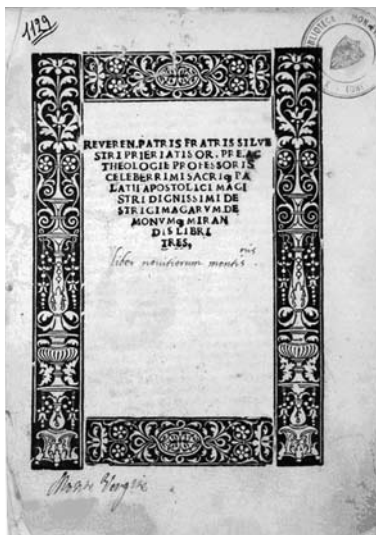 1129
REVEREN. PATRIS FRATRIS SILVE
STRI PRIERIATIS OR. PRE. AC
THEOLOGIE PROFESSORIS
CELEBERRIMI SACRIQ; PA
LATII APOSTOLICI MAGI
STRI DIGNISSIMI DE
STRIGIMAGARVM, DE
MONVMQ; MIRAN
DIS LIBRI
TRES,
liber novitiorum montis